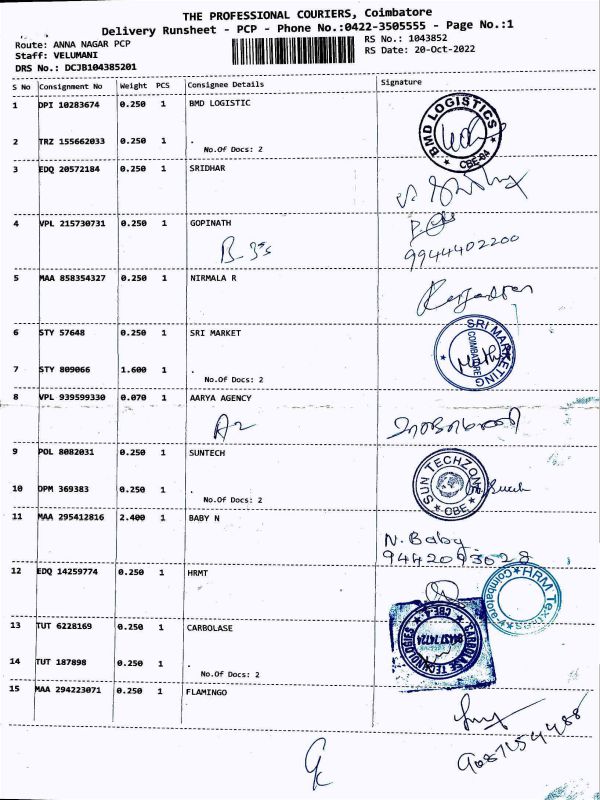 THE PROFESSIONAL COURIERS, Coimbatore
Delivery Runsheet - PCP - Phone No.:0422-3505555 - Page No.:1
Route: ANNA NAGAR PCP
Staff: VELUMANI
DRS No.: DCJB104385201
RS No.: 1043852
RS Date: 20-Oct-2022
S No Consignment No Weight PCS Consignee Details Signature
1 DPI 10283674 0.250 1 BMD LOGISTIC
BMD LOGISTICS
CBE-04
2 TRZ 155662033 0.250 1 .
No.Of Docs: 2
3 EDQ 20572184 0.250 1 SRIDHAR
4 VPL 215730731 0.250 1 GOPINATH
9944402200
5 MAA 858354327 0.250 1 NIRMALA R
6 STY 57648 0.250 1 SRI MARKET
SRI MARKETING
COIMBATORE
7 STY 809066 1.600 1 .
No.Of Docs: 2
8 VPL 939599330 0.070 1 AARYA AGENCY
9 POL 8082031 0.250 1 SUNTECH
SUN TECHZONE
CBE
10 DPM 369383 0.250 1 .
No.Of Docs: 2
11 MAA 295412816 2.400 1 BABY N
N. Baby
9442093028
12 EDQ 14259774 0.250 1 HRMT
HRM Tex
Coimbatore
13 TUT 6228169 0.250 1 CARBOLASE
CARBOLASE TECHNOLOGIES
CBE-4
14 TUT 187898 0.250 1 .
No.Of Docs: 2
15 MAA 294223071 0.250 1 FLAMINGO